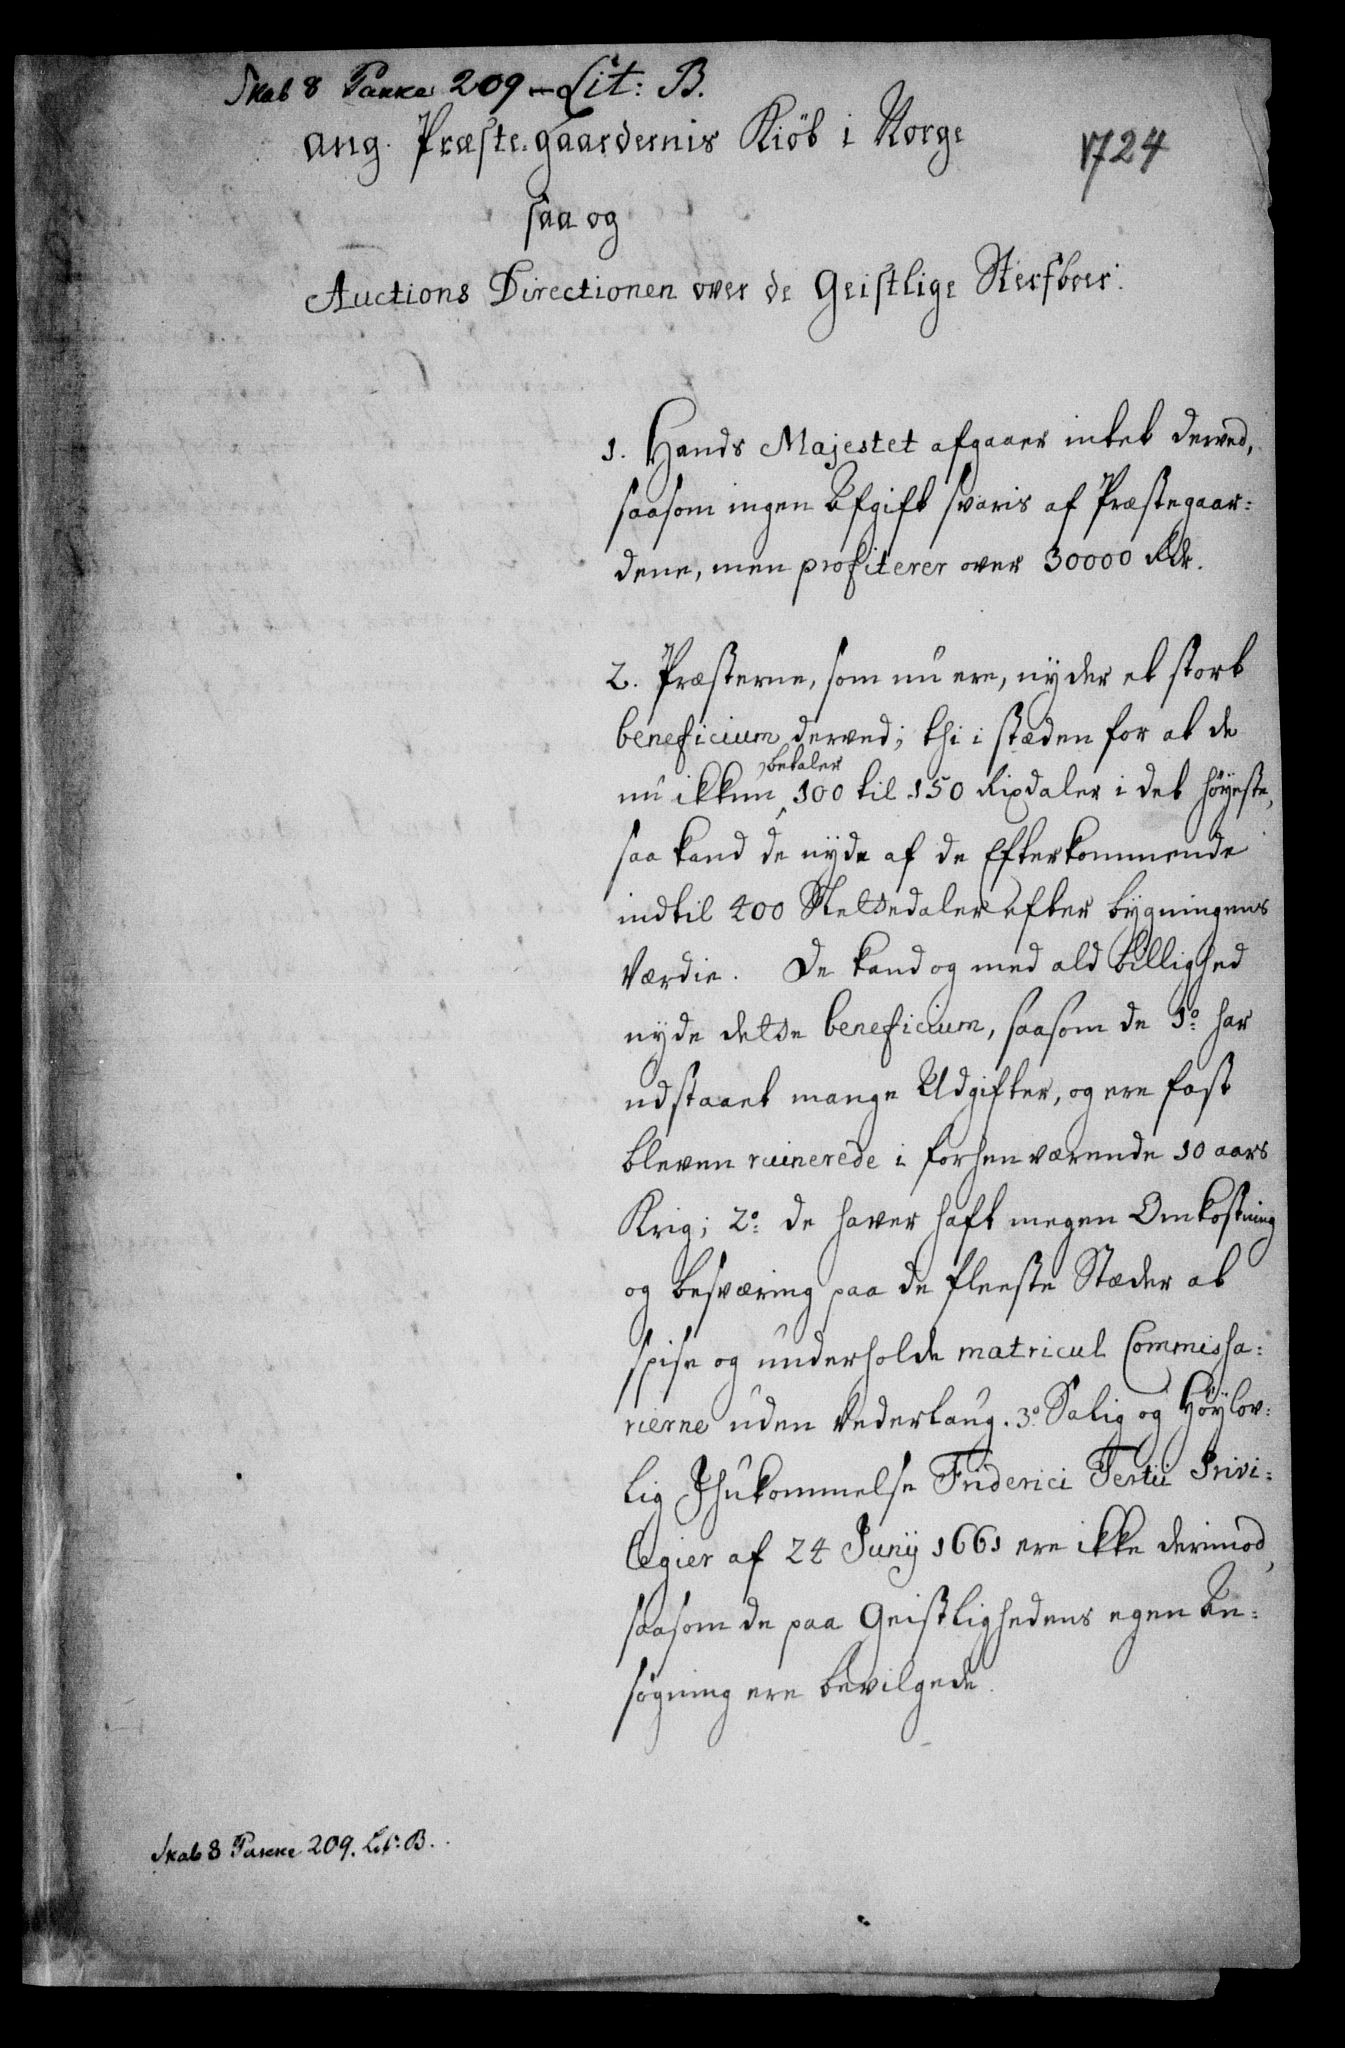 Skab 8 Pakke 209 - Lit: B.
ang. Præste-gaardernis Kiöb i Norge
1724
saa og
Auctions Directionen over de Geistlige Sterfboer.
1. Hands Majestet afgaaer intet derved,
saasom ingen Afgift svaris af Præstegaar=
dene, men profiterer over 30000 Rdr.
2. Præsterne, som nu ere, nyder et stort
beneficium derved; thi i stæden for at de
betaler
nu ikkun 100 til 150 Rixdaler i det høyeste,
saa kand de nyde af de Efterkommende
indtil 400 Slettedaler efter bygningens
Værdie. De kand og med ald billighed
nyde dette beneficium, saasom de 1o har
udstaaet mange Udgifter, og ere fast
bleven ruinerede i forhen værende 10 aars
Krig; 2o de haver haft megen Omkostning
og besværing paa de fleeste Stæder at
spise og underholde matricul Commissa=
rierne uden Vederlaug. 3o Salig og Høylov=
lig Ihukommelse Friderici Tertii Privi=
legier af 24 Junij 1661 ere ikke derimod,
saasom de paa Geistlighedens egen An=
søgning ere bevilgede.
Skab 8 Pakke 209. Lit: B.